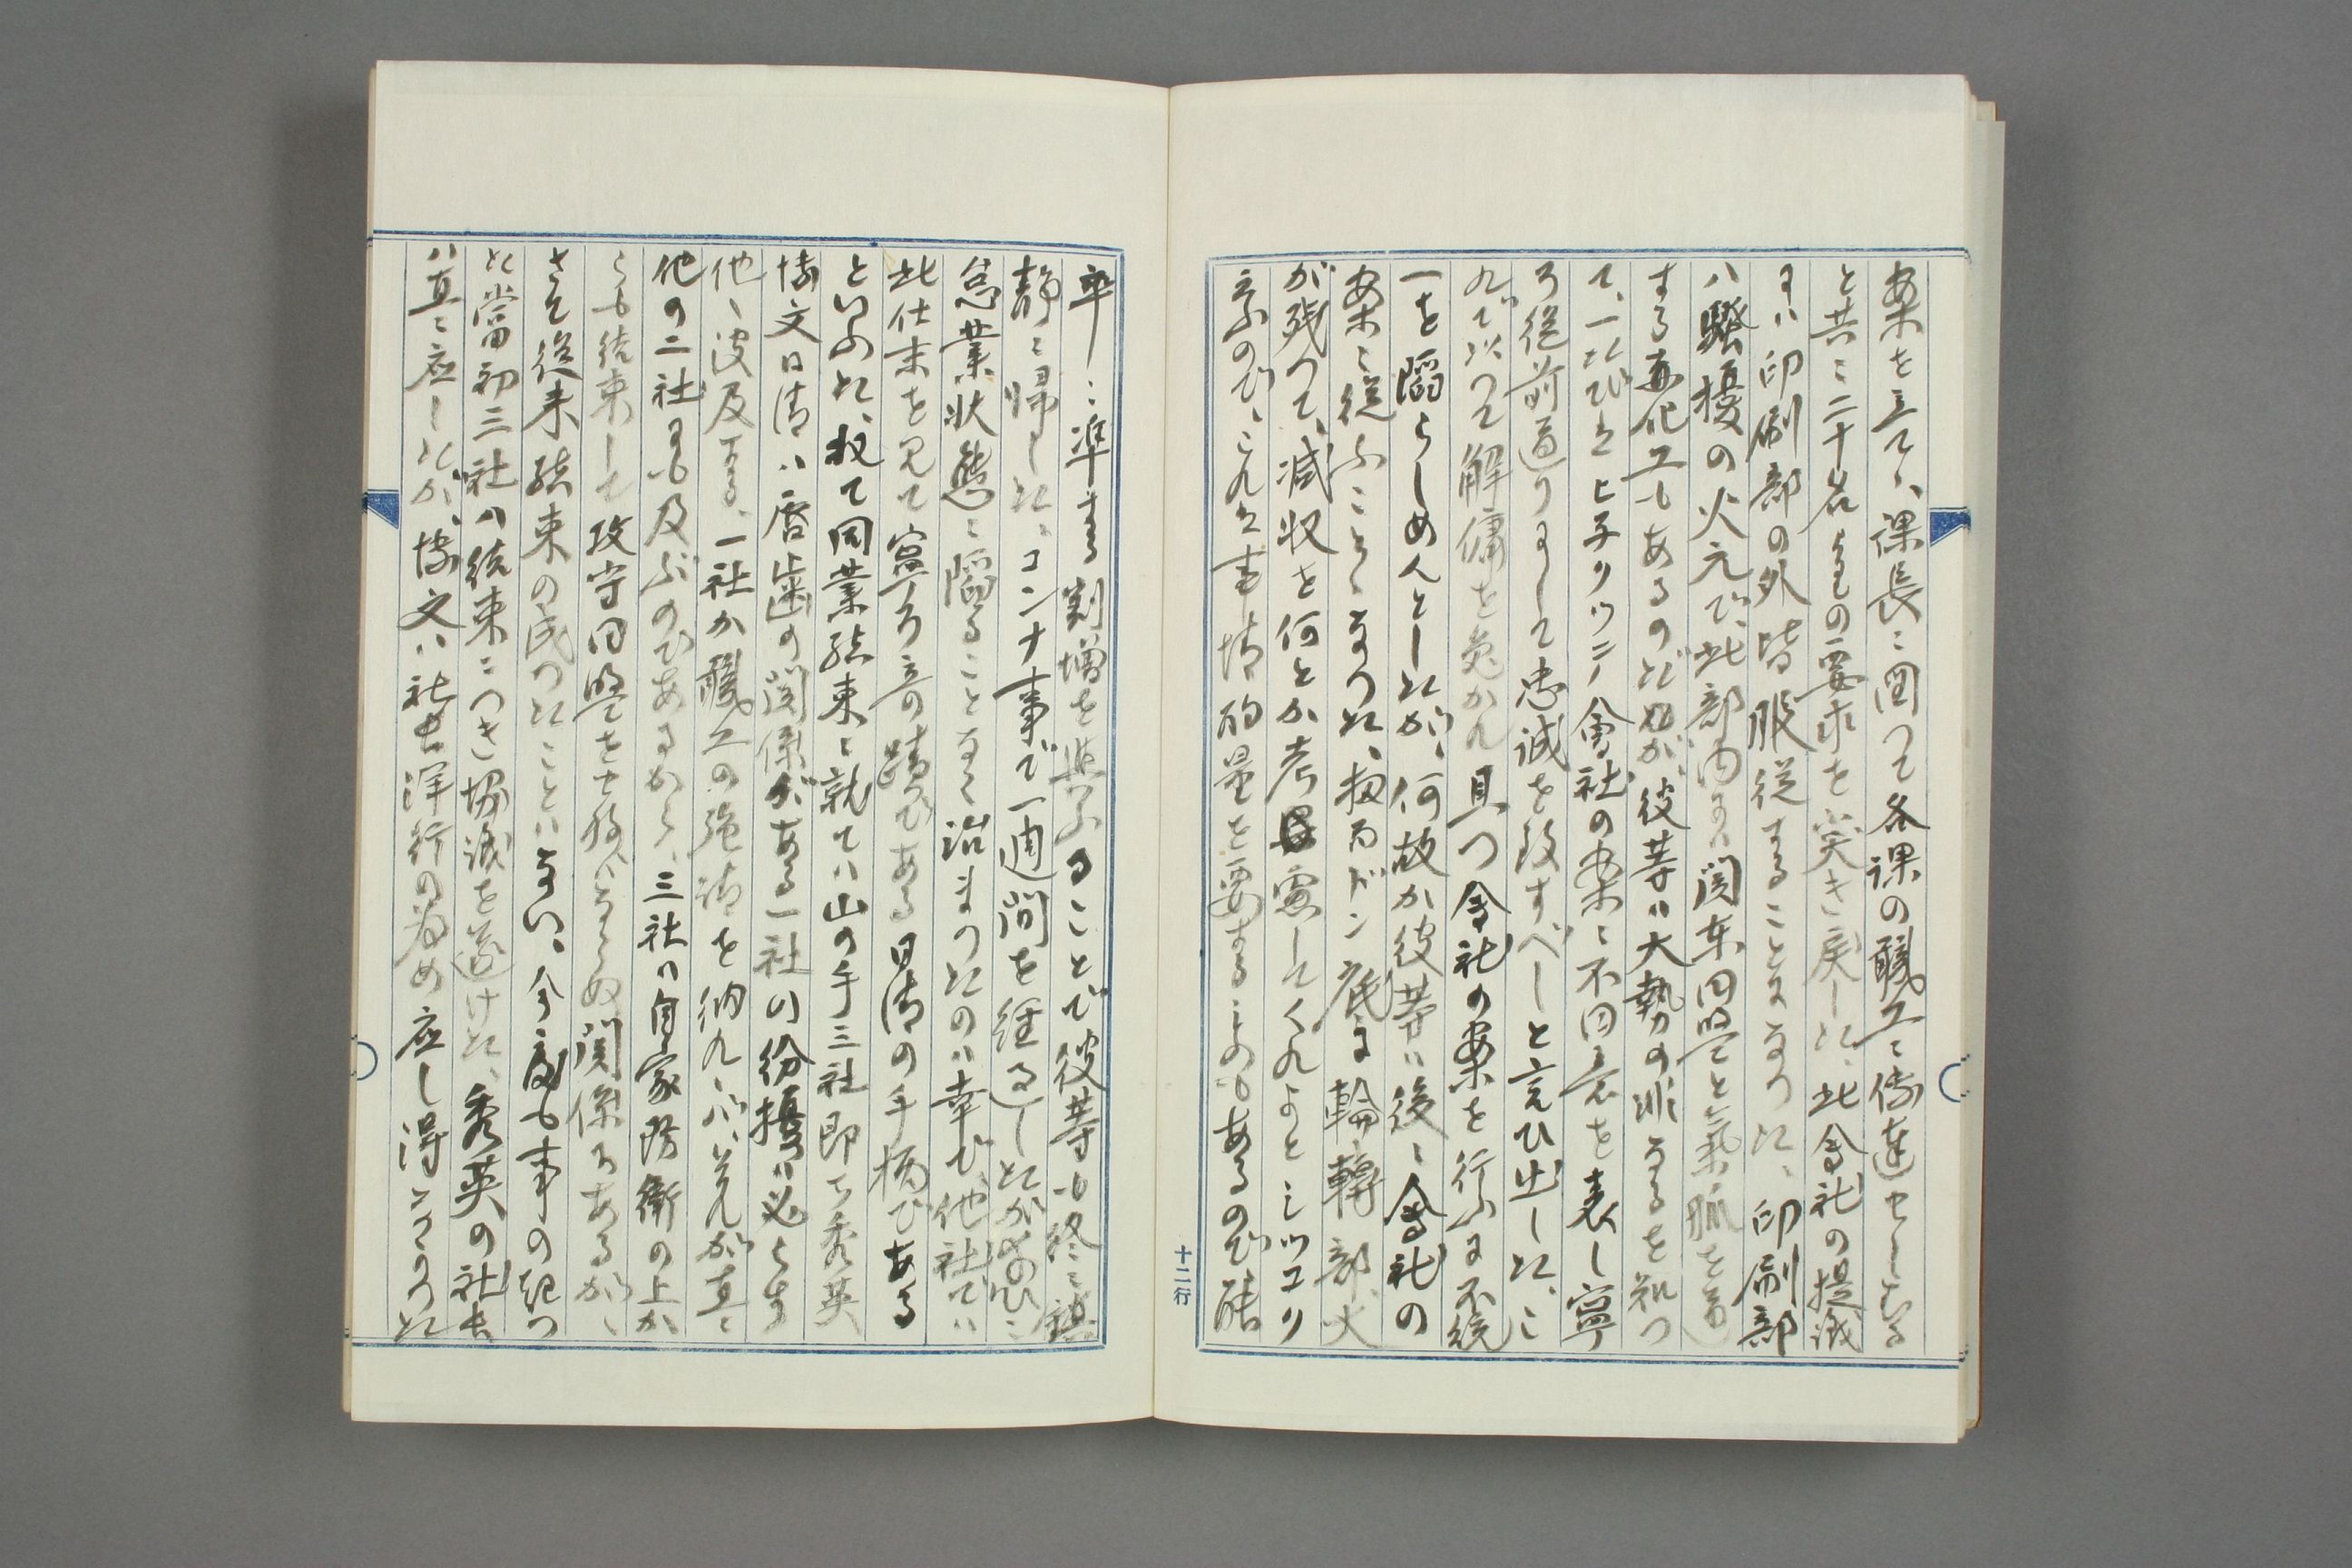 案を立てゝ、課長ニ図つて各課の職工ニ傳達せしむる
と共ニ二十名よりの要求を突き戻した、此会社の提議
には印刷部の外皆服従することになつた、印刷部
ハ騒擾の火元で、此部内には関東同盟と氣脈を通
する職工もあるのだが、彼等ハ大勢の非なるを知つ
て、一たび上ニ会社の案ニ不同意を表し寧
ろ従前通りにして忠誠を致すべしと言ひ出した、こ
れで以つて解傭を免かれ且つ会社の案を行ふに不統
一を陥らしめんとしたが、何故か彼等ハ後ニ会社の
案ニ従ふことゝなつた、扨ドン底に輪轉部、火
が残つて、減収を何とか考慮してくれよとシツコり
京ふので、これ事情酌量を要するものもあるので、能
率ニ準する割増を与ふることで彼等も終ニ鎮
静ニ帰した、コンナ事で一週間を経過したが為めニ
怠業状態ニ陥ることなく治まつたのハ幸で、他社でハ
此仕末を見て寧ろ意の外である日清の手柄である
といふた、扨て同業結束ニ就てハ山の手三社即ち秀英
博文日清ハ唇歯の関係がある一社の紛擾ハ必らす
他ヘ波及する、一社か職工の強請を納れゝバ、それが直ニ
他の二社にも及ぶのであるから、三社ハ自家防衛の上か
らも結束して攻守同盟をせねバならぬ関係ろあるが、
さて従来結束の成つたことハない、今度も事の起つ
た當初三社ハ結束ニつき協議を遂けた、秀英の社長
ハ直ニ應したが、博文ハ社長洋行の為め應し得さりつた
十二行